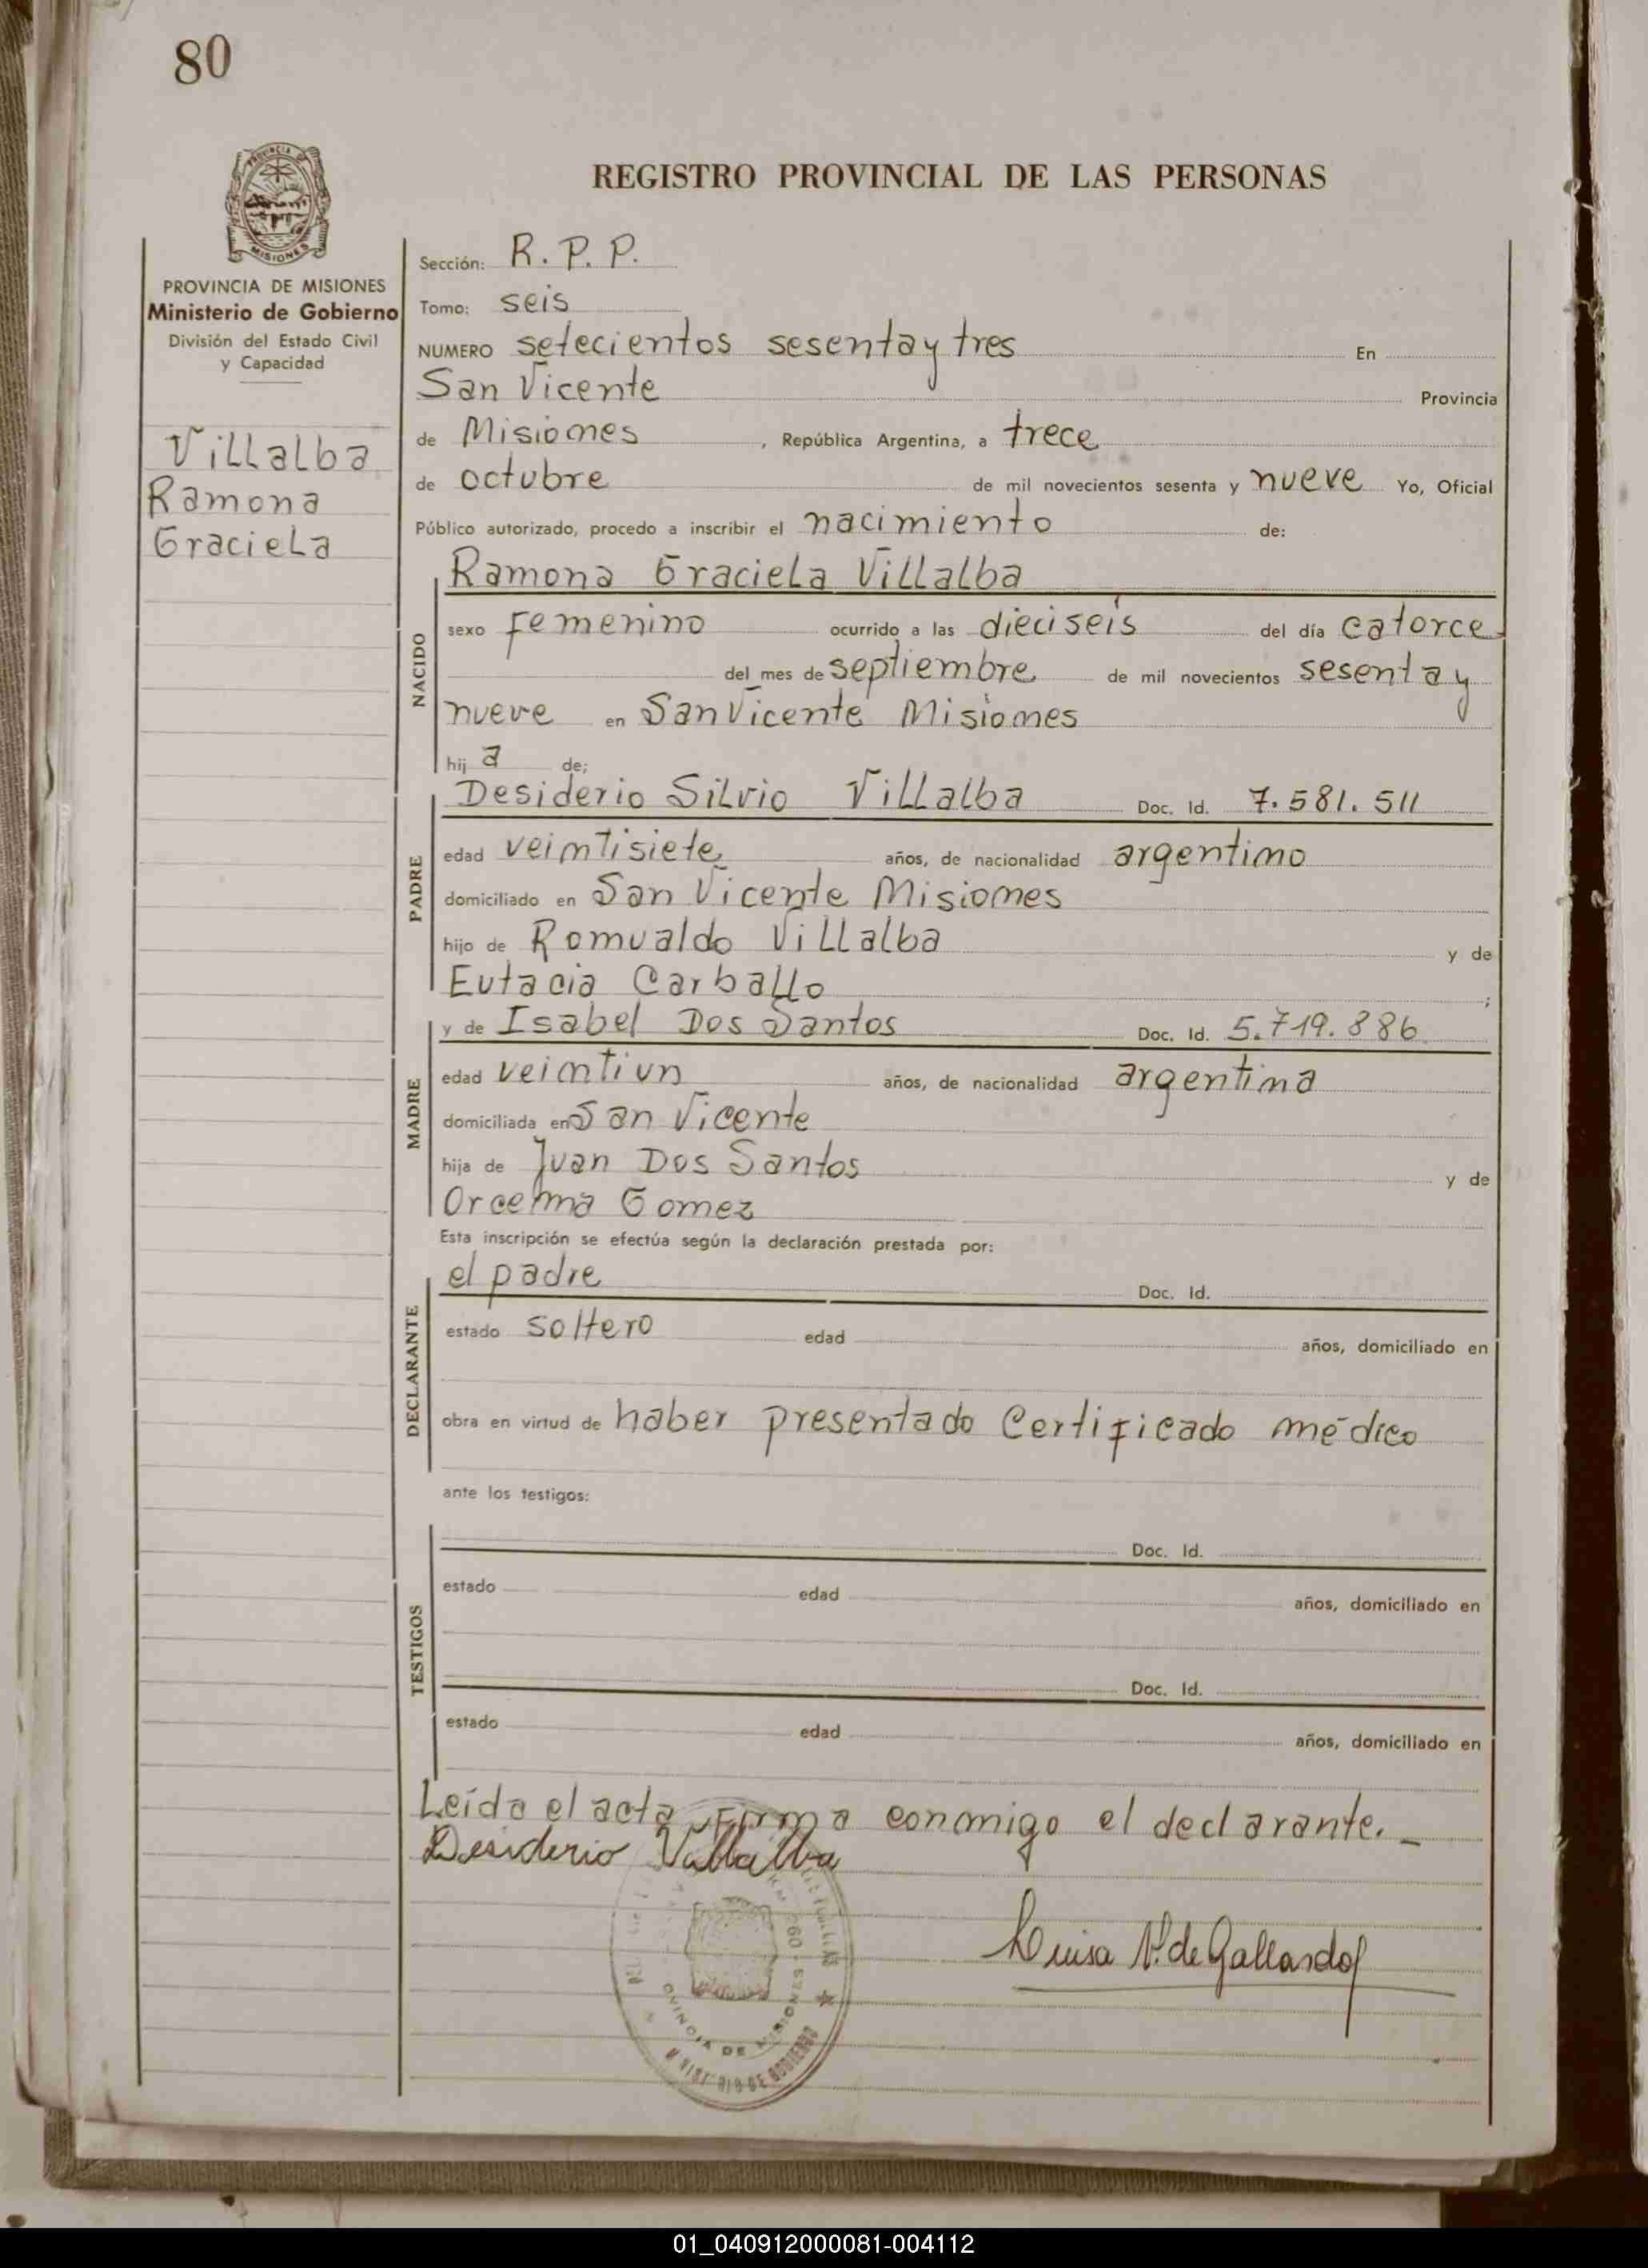 80
PROVINCIA DE
MISIONES
REGISTRO PROVINCIAL DE LAS PERSONAS
PROVINCIA DE MISIONES
Ministerio de Gobierno
División del Estado Civil
y Capacidad
Villalba
Ramona
Graciela
Sección: R. P. P.
Tomo: seis
NUMERO setecientos sesenta y tres En
San Vicente Provincia
de Misiones, República Argentina, a trece
de octubre de mil novecientos sesenta y nueve Yo, Oficial
Público autorizado, procedo a inscribir el nacimiento de:
NACIDO
Ramona Graciela Villalba
sexo Femenino ocurrido a las dieciseis del día catorce
del mes de septiembre de mil novecientos sesenta y
nueve en San Vicente Misiones
hij a de:
PADRE
Desiderio Silvio Villalba Doc. Id. 7.581.511
edad veintisiete años, de nacionalidad argentino
domiciliado en San Vicente Misiones
hijo de Romualdo Villalba y de
Eutacia Carballo ;
MADRE
y de Isabel Dos Santos Doc. Id. 5.719.886
edad veintiun años, de nacionalidad argentina
domiciliada en San Vicente
hija de Juan Dos Santos y de
Gomez
Esta inscripción se efectúa según la declaración prestada por:
DECLARANTE
el padre Doc. Id.
estado soltero edad años, domiciliado en
obra en virtud de haber presentado Certificado médico
ante los testigos:
TESTIGOS
Doc. Id.
estado edad años, domiciliado en
Doc. Id.
estado edad años, domiciliado en
Leída el acta, Firma conmigo el declarante.
Desiderio Villalba
Luisa V. de Gallardo
PROVINCIA DE MISIONES
MINISTERIO DE GOBIERNO
01_040912000081-004112